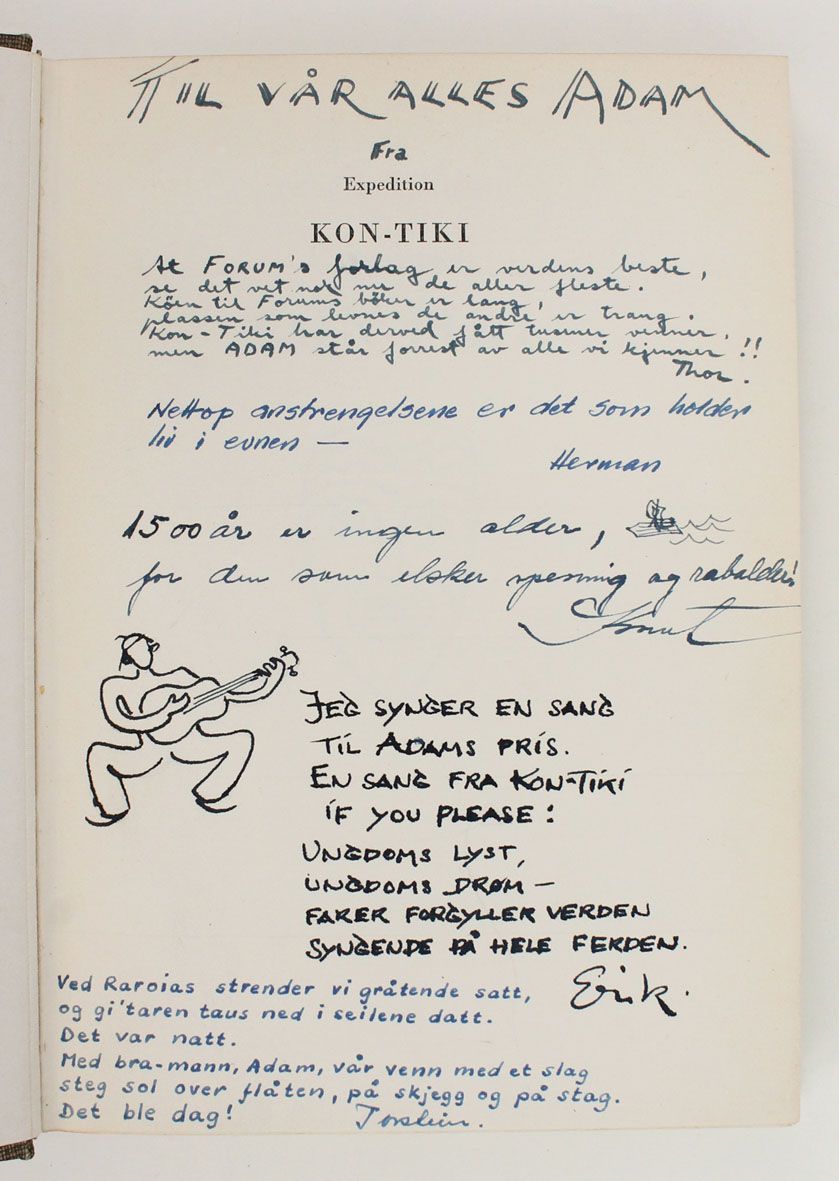 TIL VÅR ALLES ADAM
Fra
Expedition
KON-TIKI
At FORUM's forlag er verdens beste,
se det vet nok nu de aller fleste.
Köen til Forums böker er lang,
plassen som levnes de andre er trang.
Kon-Tiki har derved fått tusner venner,
men ADAM står forrest av alle vi kjenner!!
Thor.
Nettop anstrengelsene er det som holder
liv i evnen —
Herman
1500 år er ingen alder,
for den som elsker spenning og rabalder!
Knut
JEG SYNGER EN SANG
TIL ADAMS PRIS.
EN SANG FRA KON-TIKI
IF YOU PLEASE:
UNGDOMS LYST,
UNGDOMS DRØM —
FARER FORGYLLER VERDEN
SYNGENDE PÅ HELE FERDEN.
Erik.
Ved Raroias strender vi gråtende satt,
og gi'taren taus ned i seilene datt.
Det var natt.
Med bra-mann, Adam, vår venn med et slag
steg sol over flåten, på skjegg og på stag.
Det ble dag!
Torstein.